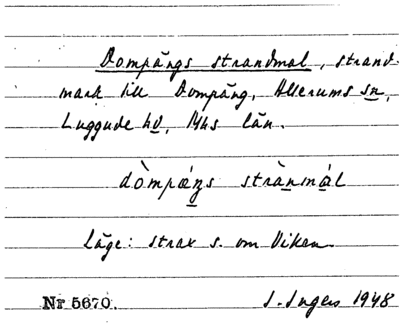 Dompängs strandmal, strand-
mark till Dompäng, Allerums sn,
Luggude hd, Mhs län.
dòmpǽŋs strànmál
Läge: strax s. om Viken.
Nr 5670. I. Ingers 1948